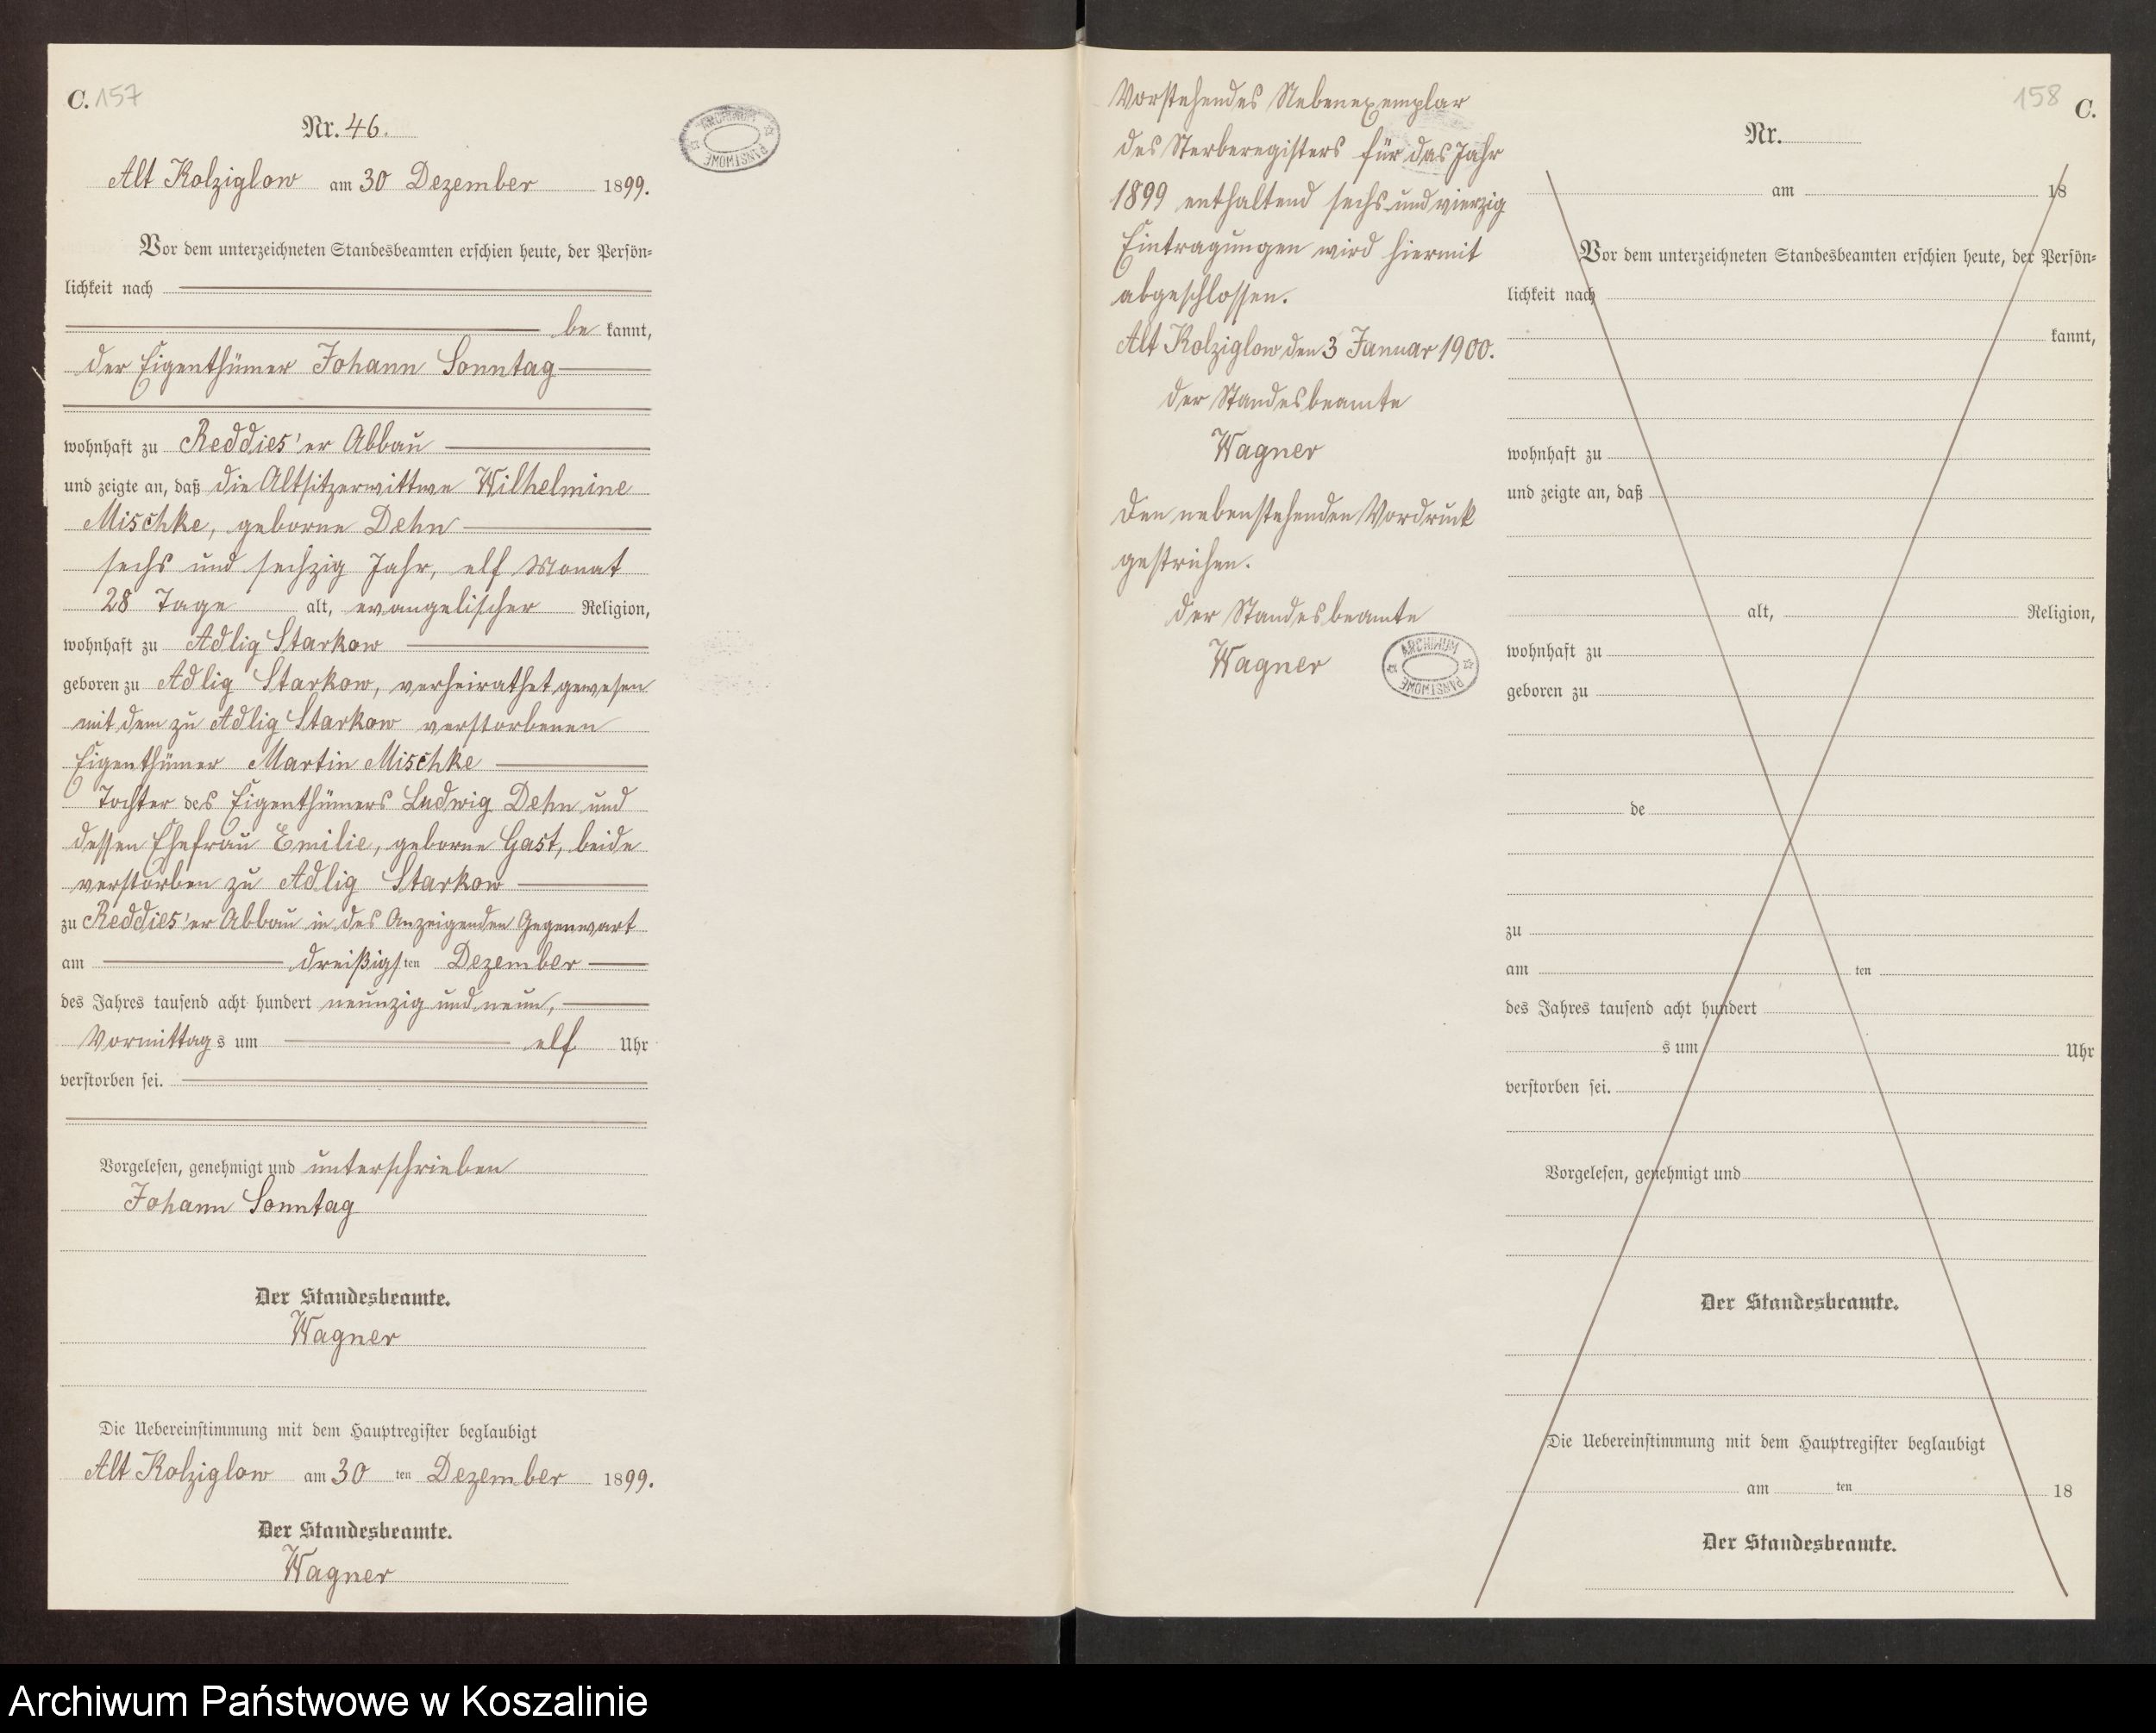 C. 157
Nr. 46.
Alt Kolziglow am 30 Dezember 1899.
Vor dem unterzeichneten Standesbeamten erschien heute, der Persön-
lichkeit nach
be kannt,
der Eigenthümer Johann Sonntag
wohnhaft zu Reddies'er Abbau
und zeigte an, daß die Altsitzerwittwe Wilhelmine
Mischke, geborne Dehn
sechs und sechzig Jahr, elf Monat
28 Tage alt, evangelischer Religion,
wohnhaft zu Adlig Starkow
geboren zu Adlig Starkow, verheirathet gewesen
mit dem zu Adlig Starkow verstorbenen
Eigenthümer Martin Mischke
Tochter des Eigenthümers Ludwig Dehn und
dessen Ehefrau Emilie, geborne Gast, beide
verstorben zu Adlig Starkow
zu Reddies'er Abbau in des Anzeigenden Gegenwart
am dreißigsten Dezember
des Jahres tausend acht hundert neunzig und neun,
Vormittags um elf Uhr
verstorben sei.
Vorgelesen, genehmigt und unterschrieben
Johann Sonntag
Der Standesbeamte.
Wagner
Die Uebereinstimmung mit dem Hauptregister beglaubigt
Alt Kolziglow am 30 ten Dezember 1899.
Der Standesbeamte.
Wagner
ARCHIWUM PAŃSTWOWE
Vorstehendes Nebenexemplar
des Sterberegisters für das Jahr
1899 enthaltend sechs und vierzig
Eintragungen wird hiermit
abgeschlossen.
Alt Kolziglow den 3 Januar 1900.
der Standesbeamte
Wagner
Den nebenstehenden Vordruck
gestrichen.
der Standesbeamte
Wagner
ARCHIWUM PAŃSTWOWE
158 C.
Nr.
am 18
Vor dem unterzeichneten Standesbeamten erschien heute, der Persön-
lichkeit nach
kannt,
wohnhaft zu
und zeigte an, daß
alt, Religion,
wohnhaft zu
geboren zu
de
zu
am ten
des Jahres tausend acht hundert
s um Uhr
verstorben sei.
Vorgelesen, genehmigt und
Der Standesbeamte.
Die Uebereinstimmung mit dem Hauptregister beglaubigt
am ten 18
Der Standesbeamte.
Archiwum Państwowe w Koszalinie